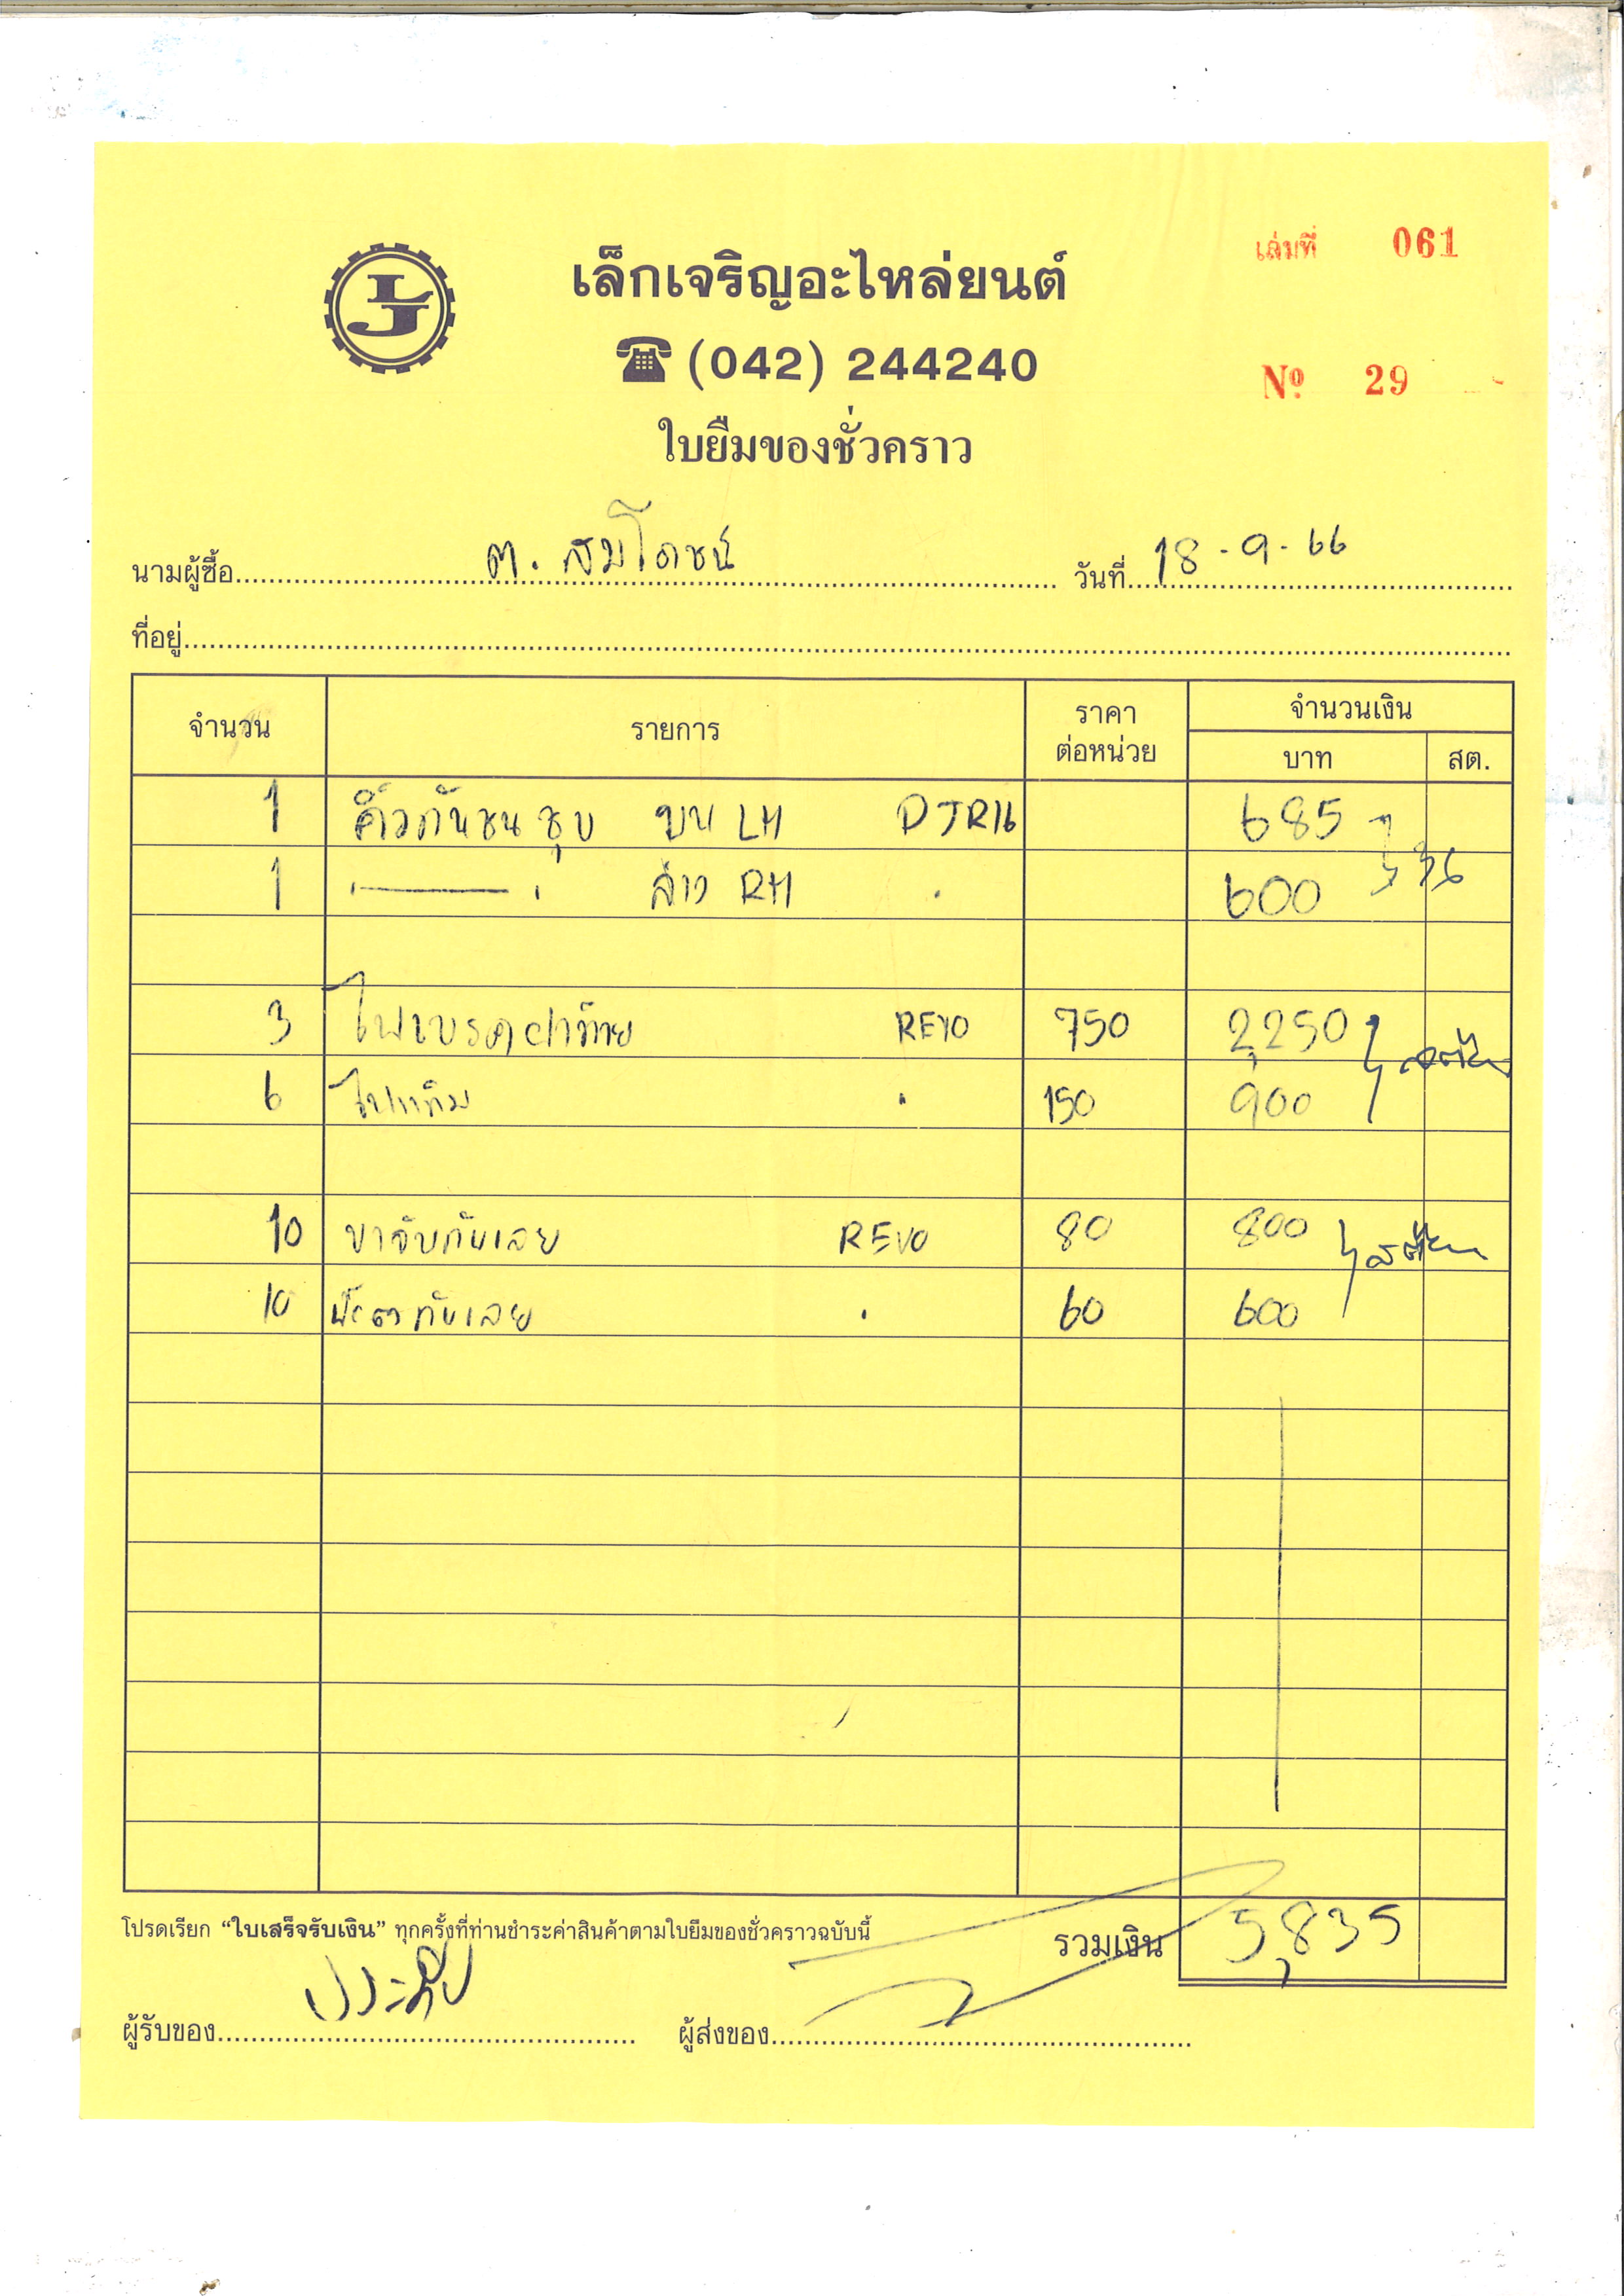 เล่มที่ 061
LJ
เล็กเจริญอะไหล่ยนต์
(042) 244240
Nº 29
ใบยืมของชั่วคราว
นามผู้ซื้อ ต. สมโภชน์ วันที่ 18-9-66
ที่อยู่
จำนวน รายการ ราคาต่อหน่วย จำนวนเงิน
บาท สต.
1 คิ้วกันชน ชุบ บน LH 685
1 ล่าง RH 600
3 ไฟเบรคฝาท้าย REVO 750 2,250
6 150 900
10 ขาจับกันเลย REVO 80 800
10 กันเลย 60 600
โปรดเรียก “ใบเสร็จรับเงิน” ทุกครั้งที่ท่านชำระค่าสินค้าตามใบยืมของชั่วคราวฉบับนี้
รวมเงิน 5,835
ผู้รับของ ผู้ส่งของ